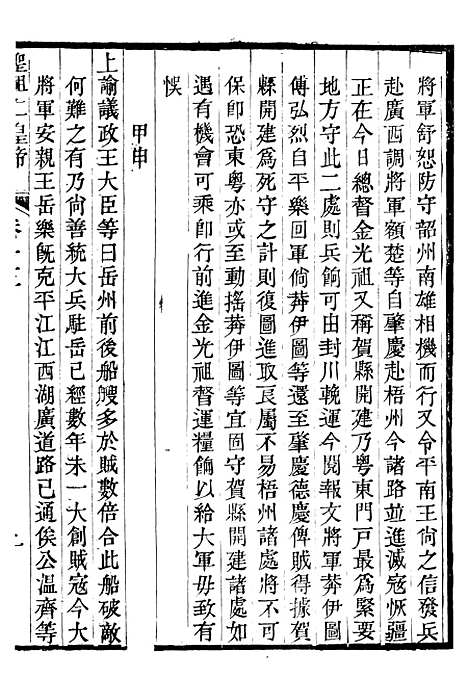 將軍舒恕防守韶州南雄相機而行又令平南王尚之信發兵
赴廣西調將軍額楚等自肇慶赴梧州今諸路並進滅寇恢疆
正在今日總督金光祖又稱賀縣開建乃粤東門戸最爲緊要
地方守此二處則兵餉可由封川輓運今閱報文將軍莽伊圖
傅弘烈自平樂回軍倘莽伊圖等還至肇慶德慶俾賊得據賀
縣開建爲死守之計則復圖進取艮屬不易梧州諸處可不能
保即恐東粤亦或至動搖莽伊圖等宜固守賀縣開建諸處如
遇有機會可乘即行前進金光祖督運糧餉以給大軍毋致有
悞
甲申
上諭議政王大臣等曰岳州前後船艘多於賊數倍合此船破敵
何難之有乃尚善統大兵駐岳已經數年未一大創賊寇今大
將軍安親王岳樂旣克平江江西湖廣道路已通俟公溫齊等
聖祖仁皇帝
九